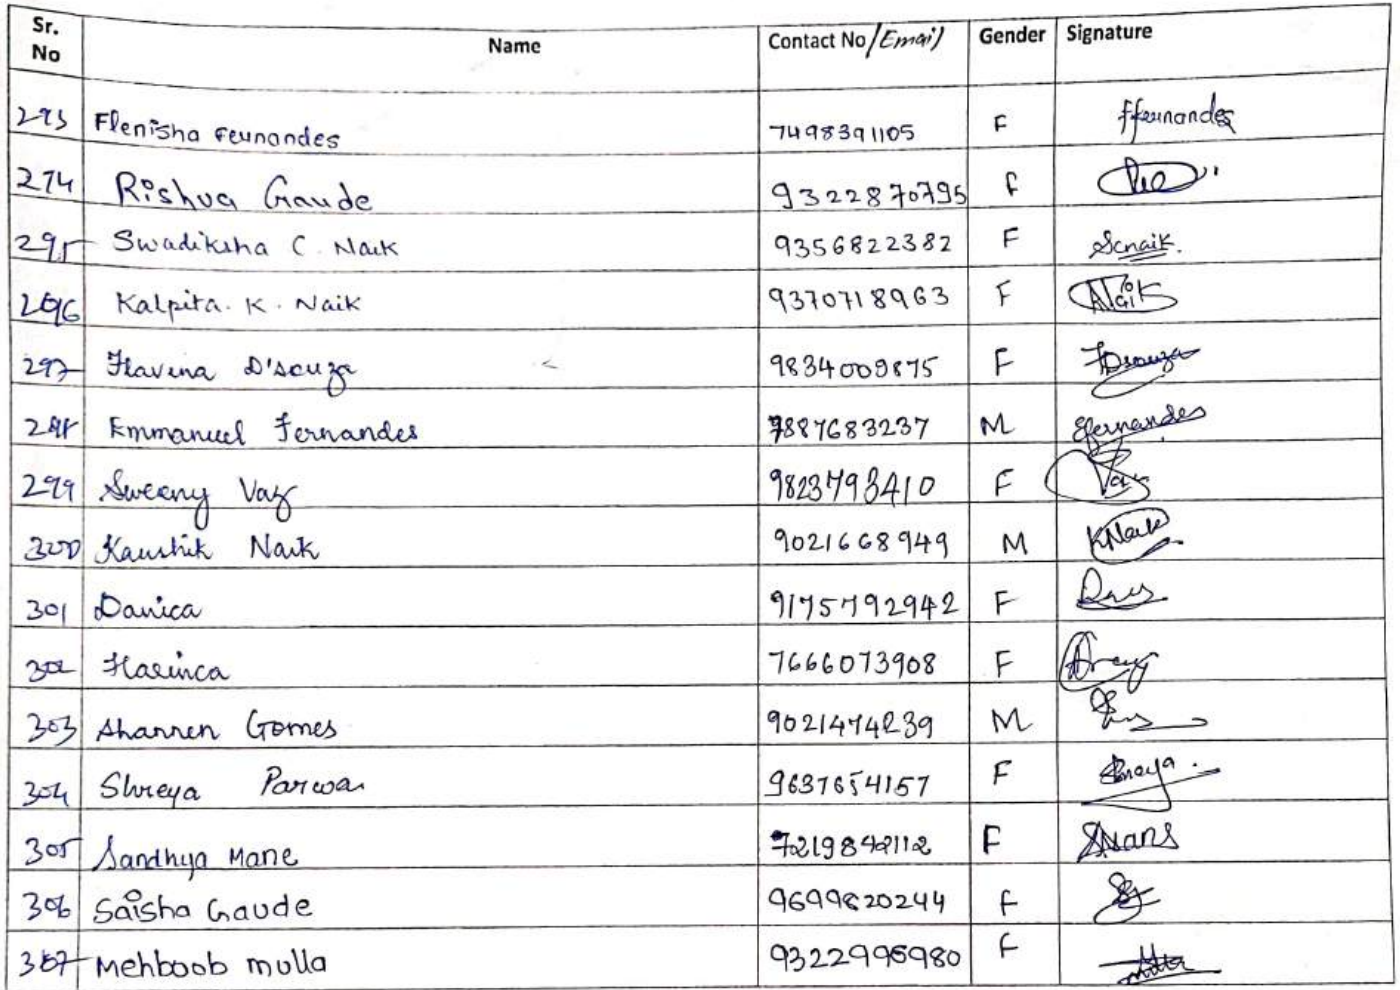 Sr. No Name Contact No/Email) Gender Signature
293 Flenisha Fernandes 7498391105 F ffernandes
294 Rishva Gaude 9322870795 f
295 Swadiksha C. Naik 9356822382 F Scnaik.
296 Kalpita. K. Naik 9370718963 F Naik
297 Flavina D'souza 9834009875 F FDsouza
298 Emmanuel Fernandes 7887683237 M Efernandes
299 Sweeny Vaz 9823793410 F Vaz
300 Kaushik Naik 9021668949 M KNaik
301 Danica 9175792942 F
302 7666073908 F
303 Shannen Gomes 9021474239 M
304 Shreya Parwar 9637654157 F Shreya.
305 Sandhya Mane 7219842112 F
306 Saisha Gaude 9699820244 f
307 Mehboob mulla 9322995980 F